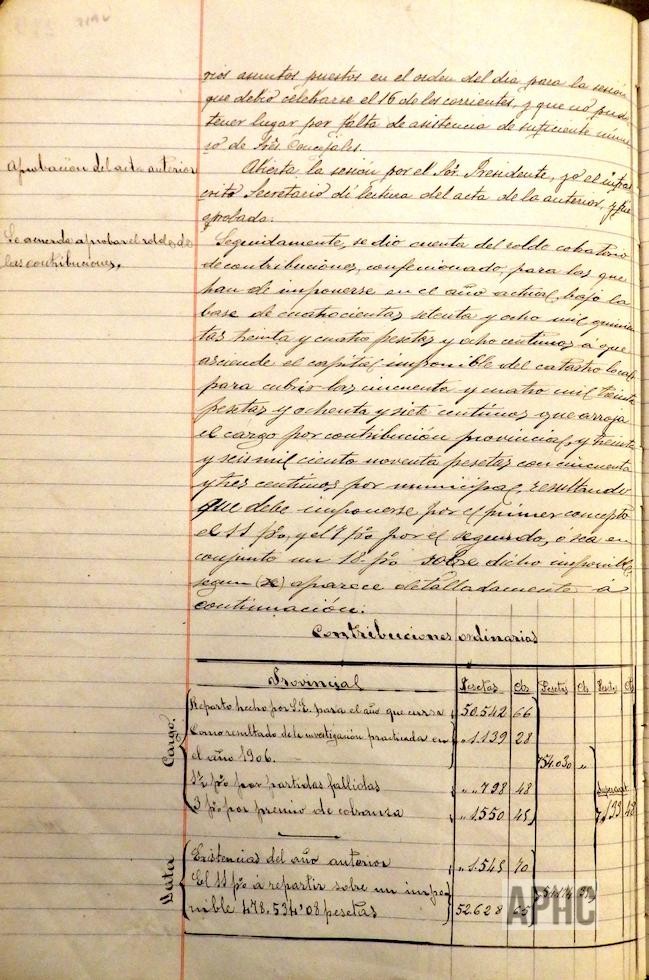 rios asuntos puestos en el orden del dia para la sesión
que debió celebrarse el 16 de los corrientes, y que no pudo
tener lugar por falta de asistencia de suficiente núme
ro de Srēs Concejales.
Aprobación del acta anterior
Abierta la sesión por el Sōr. Presidente, yo el infras
crito Secretario dí lectura del acta de la anterior, y fué
aprobada.
Se acuerda aprobar el roldo de
las contribuciones.
Seguidamente, se dio cuenta del roldo cobratorio
de contribuciones, confeccionado, para las que
han de imponerse en el año actual, bajo la
base de cuatrocientas setenta y ocho mil quinien
tas treinta y cuatro pesetas y ocho centimos á que
asciende el capital imponible del catastro local,
para cubrir las cincuenta y cuatro mil treinta
pesetas y ochenta y siete centimos que arroja
el cargo por contribución provincial, y treinta
y seis mil ciento noventa pesetas con cincuenta
y tres centimos por municipal, resultando
que debe imponerse por el primer concepto
el 11 p%, y el 7 p% por el segundo, ó sea en
conjunto un 18 p% sobre dicho imponible
segun (se) aparece detalladamente á
continuación:
Contribuciones ordinarias
Provincial Pesetas Cts Pesetas Cts Pesetas Cts
Cargo.
Reparto hecho por S.E. para el año que cursa 50.542 66
Como resultado de la investigación practicada en
el año 1906. „1.139 28
54.030 „
1½ p% por partidas fallidas „„798 48
3 p% por premio de cobranza „1.550 45
Data
Existencias del año anterior „1.545 70
El 11 p% á repartir sobre un impo
nible 478.534'08 pesetas 52.628 65
APHC